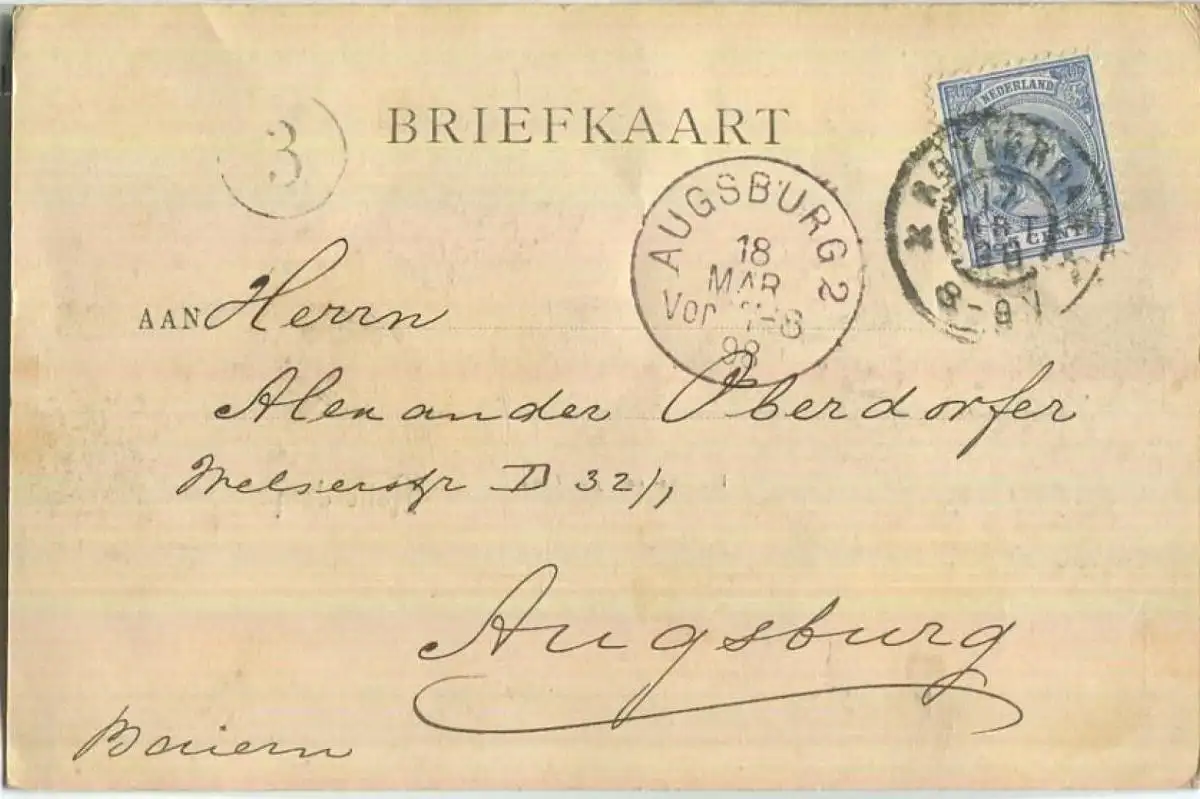 3
BRIEFKAART
NEDERLAND
ROTTERDA
AUGSBURG 2
18
MAR
Vor 7-8
98
8-9V
AAN Herrn
Alexander Oberdorfer
Welserstr D 32/1
Augsburg
Baiern